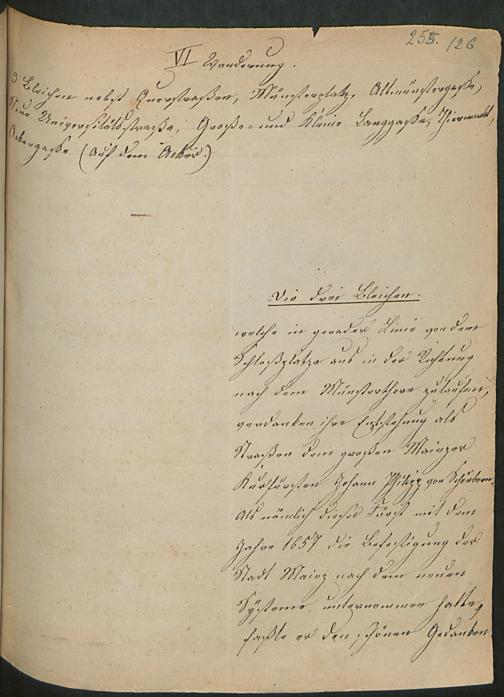 255. 126
VI Wanderung.
3 Bleichen nebst Querstraßen, Münsterplatz, Altmünstergasse,
Neue Universitätsstraße, Große- und Kleine Langgasse, Thiermarkt,
Ackergasse (Auf dem Acker.)
Die drei Bleichen.
welche in gerader Linie von dem
Schloßplatze aus in der Richtung
nach dem Münsterthore zulaufen,
verdanken ihre Entstehung als
Straßen dem großen Mainzer
Kurfürsten Johann Philipp von Schönborn.
Als nämlich dieser Fürst mit dem
Jahre 1657 die Befestigung der
Stadt Mainz nach dem neuen
Systeme unternommen hatte,
faßte er den schönen Gedanken